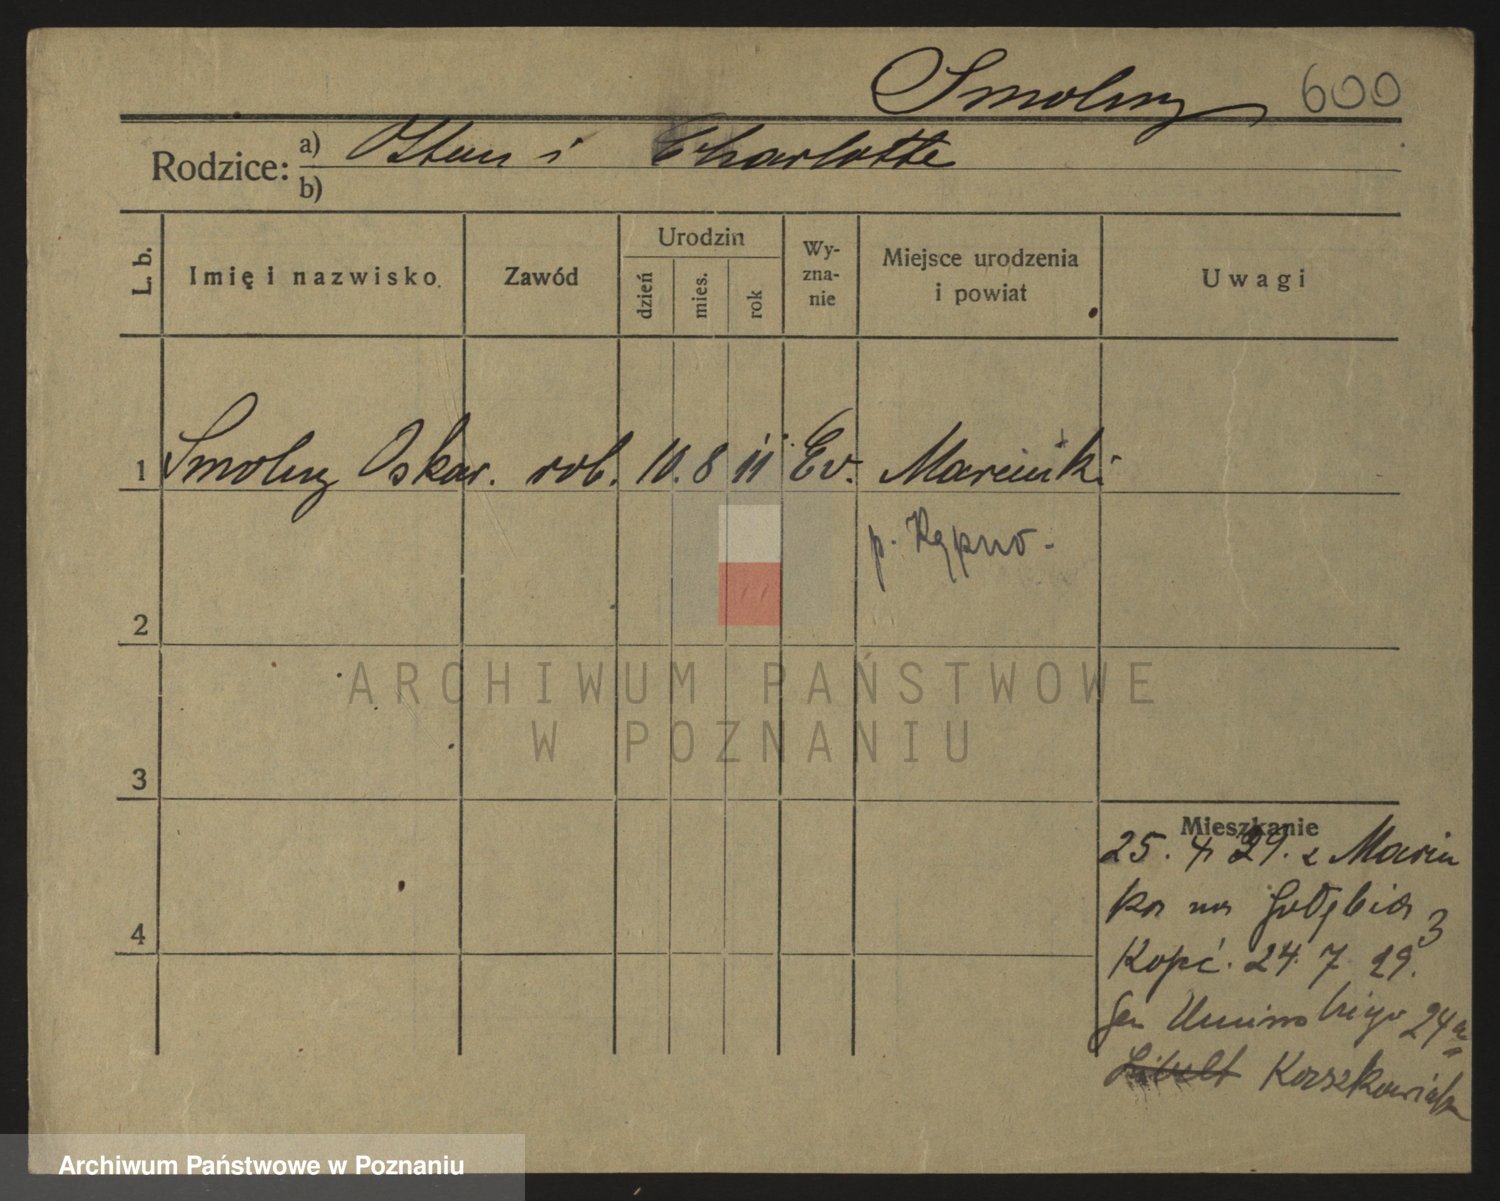 Smolny 600
Rodzice: a) i Charlotte
b)
L. b.
Imię i nazwisko.
Zawód
Urodzin
dzień
mies.
rok
Wy-
zna-
nie
Miejsce urodzenia
i powiat
Uwagi
1 Smolny Oskar. rob. 10. 8 11 Ev. Marcinki
p. Kępno -
2
3
4
ARCHIWUM PAŃSTWOWE
W POZNANIU
Mieszkanie
25. 4 29. z
na Gołębia 3
Kopć. 24. 7 29.
Gen Umińskiego 24a
Libelt
Archiwum Państwowe w Poznaniu